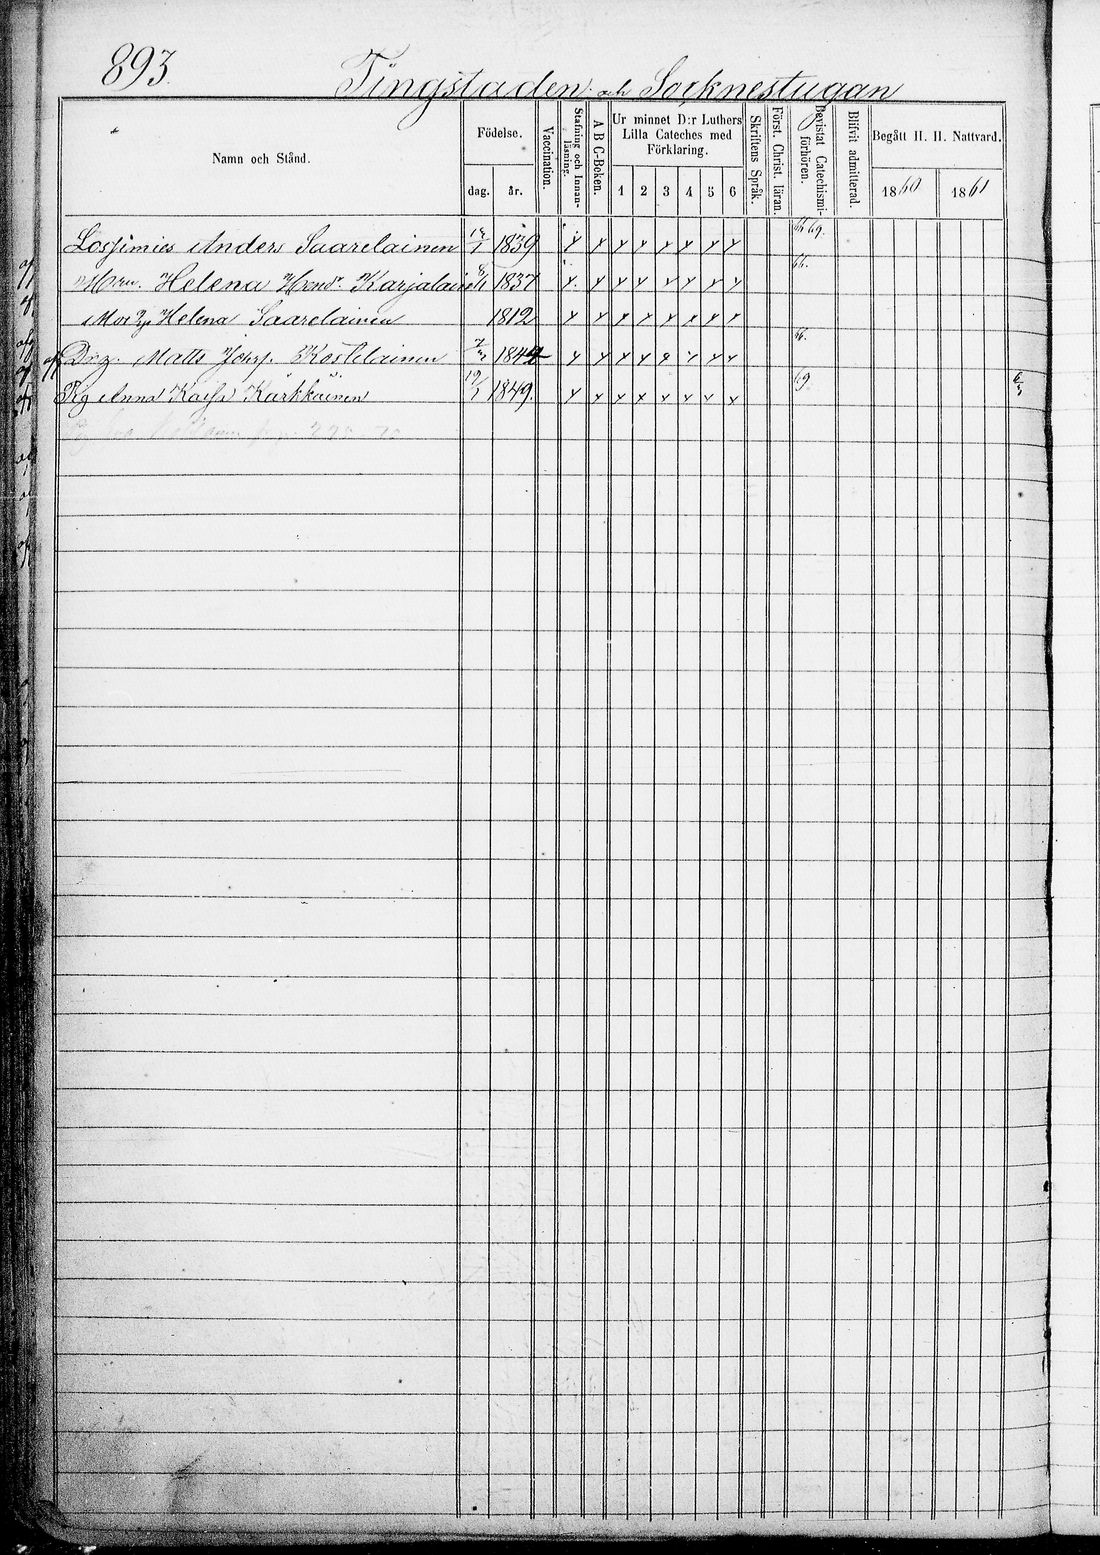 893
Tingstaden och Socknestugan
Namn och Stånd.
Födelse.
dag.
år.
Vaccination.
Stafning och Innanläsning.
A B C-Boken.
Ur minnet D:r Luthers Lilla Cateches med Förklaring.
1 2 3 4 5 6
Skriftens Språk.
Först. Christ. läran.
Bevistat Catechismiförhören.
Blifvit admitterad.
Begått H. H. Nattvard.
1860 1861
Anders Saarelainen 1839 x x x x x x x x 66 69.
Helena Hend: Karjalainen 1837 x x x x x x x x 66.
Helena Saarelainen 1812 x x x x x x x x
Drg. Matts Johs. Kostilainen 1844 x x x x x x x x
Pig Anna Kaisa Kärkkäinen 19/7 1849. x x x x x x x x 69.